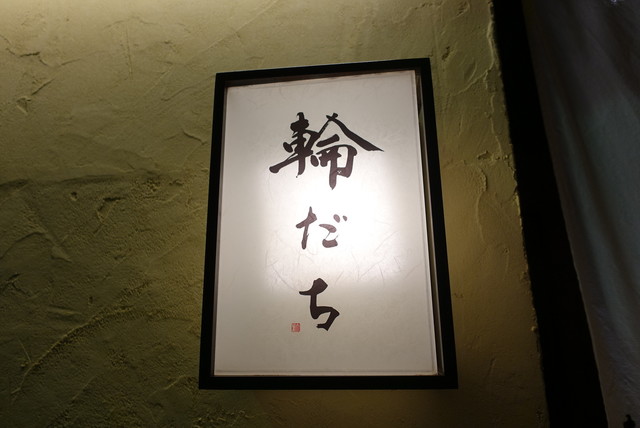 輪だち